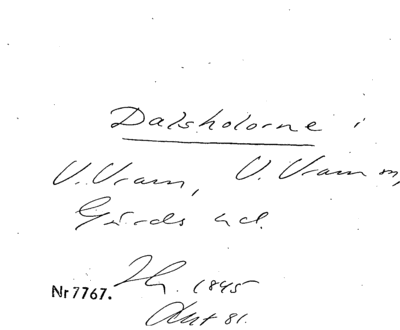 Dalsholorne i
V. Vram, V. Vram m,
Gärds hd.
1845
Nr 7767.
Akt 81.